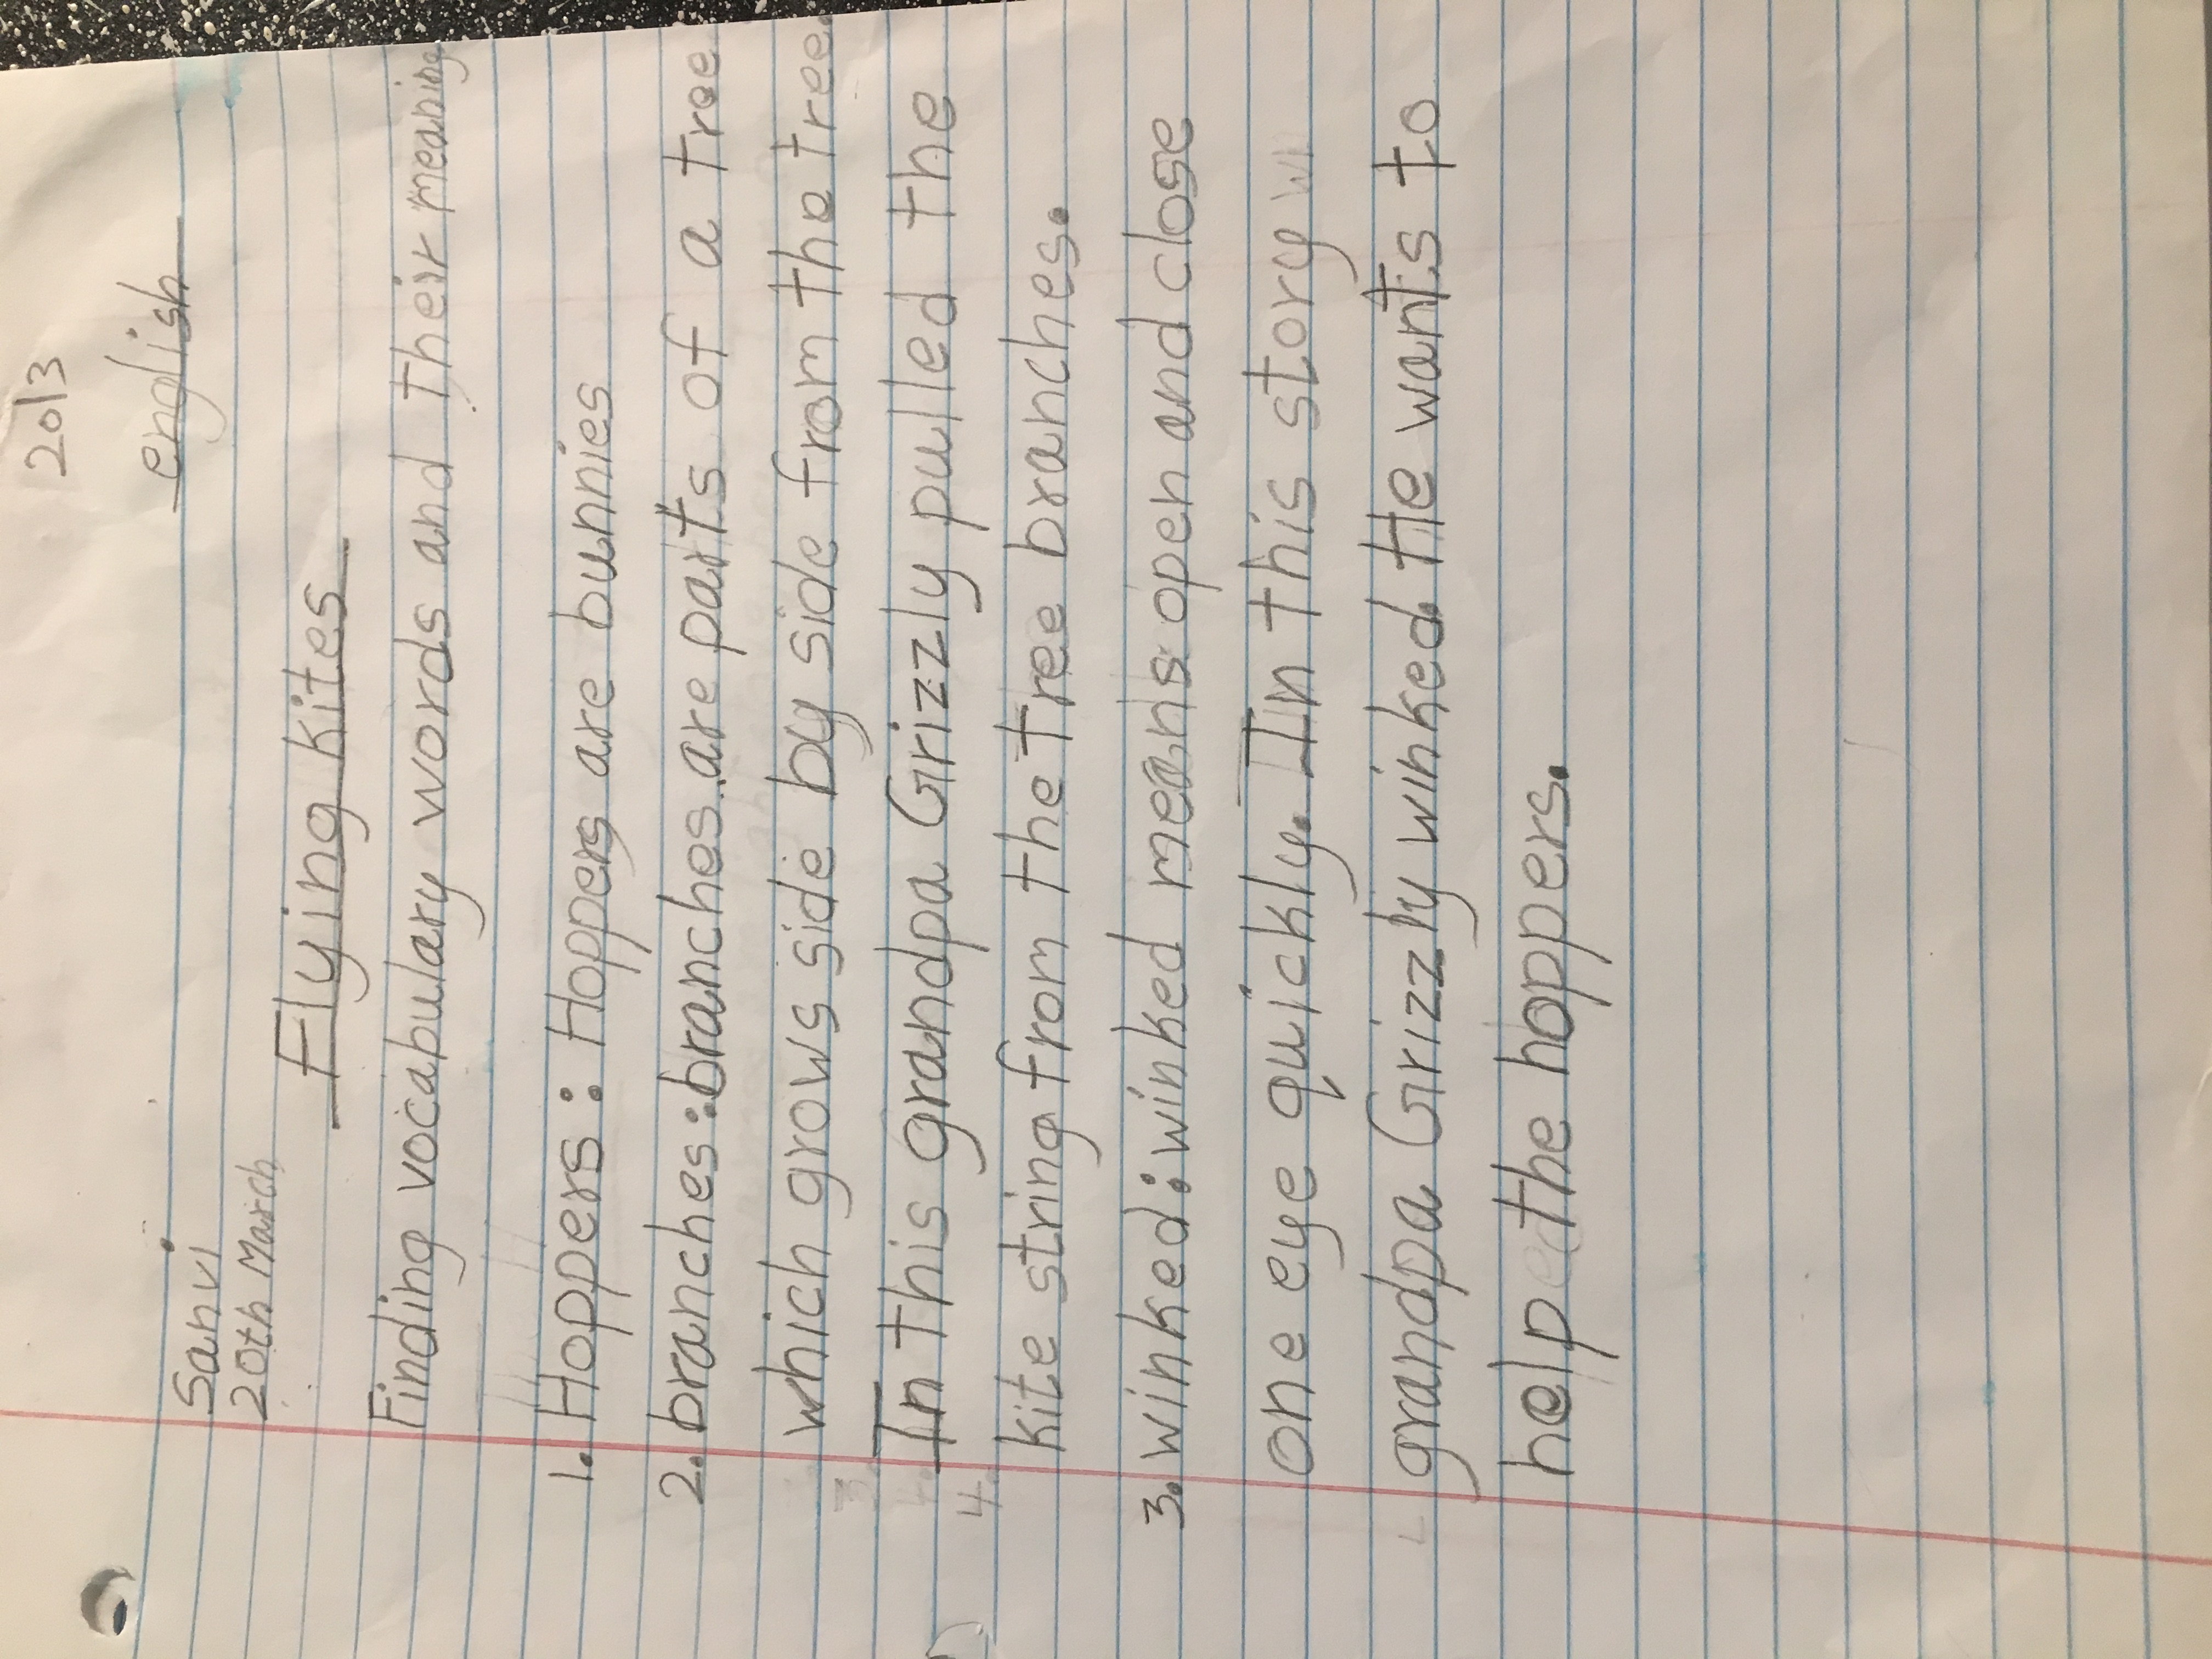 2013
english
Sanvi
20th March
Flying kites
Finding vocabulary words and their meaning
1. Hoppers : Hoppers are bunnies
2. branches : branches are parts of a tree
which grows side by side from the tree.
In this grandpa Grizzly pulled the
kite string from the tree branches.
3. winked : winked means open and close
one eye quickly. In this story
grandpa Grizzly winked. He wants to
help the hoppers.